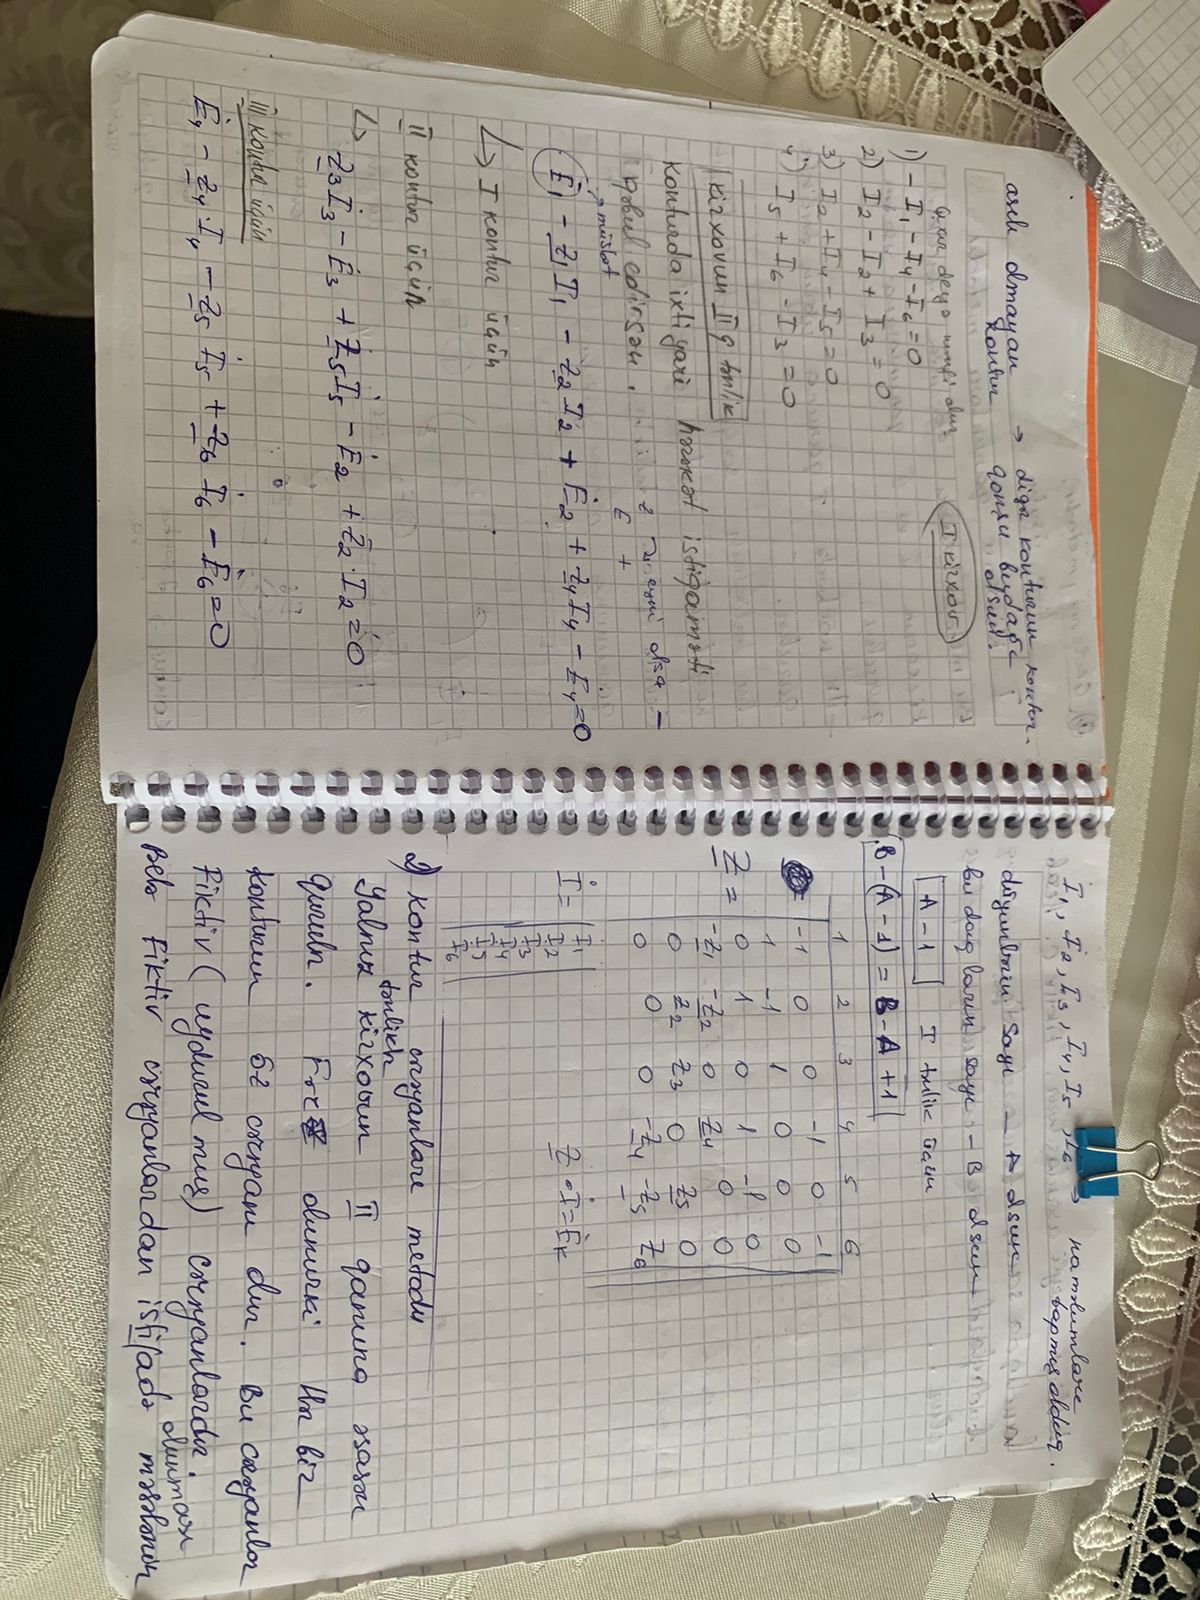 asılı olmayan → digər konturun kontur.
kontur qonşu budağı
olsun.
çıxır deyə mənfi olur
I kirxov
1) - I₁ - I₄ - I₆ = 0
2) I₂ - I₂ + I₃ = 0
3) I₂ + I₄ - I₅ = 0
4) I₅ + I₆ - I₃ = 0
kirxovun II ç tənlik
konturda ixtiyari hərəkət istiqaməti
qəbul edirsən.
Z → eyni olsa -
E +
→ müsbət
Ė₁ - Z₁ I₁ - Z₂ I₂ + Ė₂ + Z₄ I₄ - Ė₄ = 0
↳ I kontur üçün
II kontur üçün
↳ Z₃ İ₃ - Ė₃ + Z₅ İ₅ - Ė₂ + Z₂ · I₂ = 0
III kontur üçün
Ė₄ - Z₄ · I₄ - Z₅ İ₅ + Z₆ İ₆ - Ė₆ = 0
I₁, I₂, I₃, I₄, I₅, I₆ → naməlumları
tapmış olduq.
düyünlərin sayı - A olsun
budaqların sayı - B olsun
A - 1 I tənlik üçün
B - (A - 1) = B - A + 1
1 2 3 4 5 6
-1 0 0 -1 0 -1
1 -1 1 0 0 0
Z = 0 1 0 1 -1 0
-Z₁ -Z₂ 0 Z₄ 0 0
0 Z₂ Z₃ 0 Z₅ 0
0 0 0 -Z₄ -Z₅ Z₆
İ = İ₁
İ₂
İ₃
İ₄
İ₅
İ₆
Z · İ = Ėₖ
2) Kontur cərəyanları metodu
tənliklər
Yalnız kirxovun II qanuna əsasən
qurulur. Fərz olunurki Hər bir
konturun öz cərəyanı dır. Bu cərəyanlar
Fiktiv (uydurulmuş) cərəyanlardır.
olunması
Belə Fiktiv cərəyanlardan istifadə məsələnin